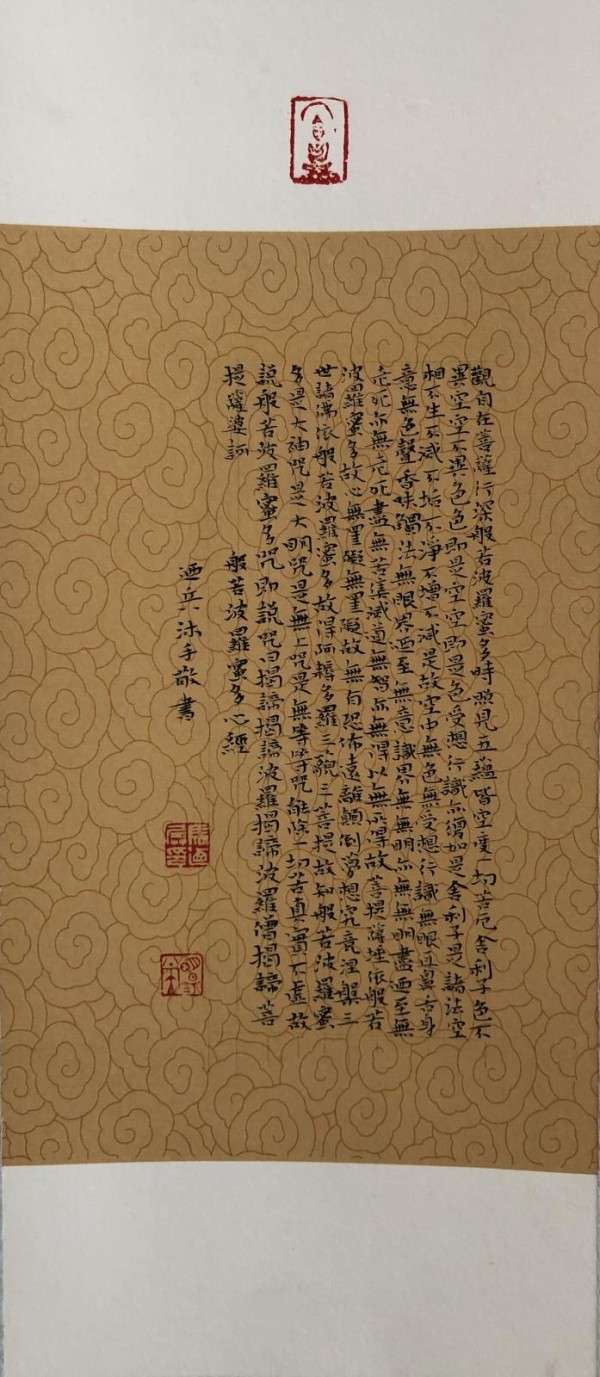 觀自在菩薩行深般若波羅蜜多時照見五蘊皆空度一切苦厄舍利子色不
異空空不異色色即是空空即是色受想行識亦復如是舍利子是諸法空
相不生不滅不垢不淨不增不減是故空中無色無受想行識無眼耳鼻舌身
意無色聲香味觸法無眼界迺至無意識界無無明亦無無明盡迺至無
老死亦無老死盡無苦集滅道無智亦無得以無所得故菩提薩埵依般若
波羅蜜多故心無罣礙無罣礙故無有恐怖遠離顛倒夢想究竟涅槃三
世諸佛依般若波羅蜜多故得阿耨多羅三藐三菩提故知般若波羅蜜
多是大神咒是大明咒是無上咒是無等等咒能除一切苦真實不虛故
說般若波羅蜜多咒即說咒曰揭諦揭諦波羅揭諦波羅僧揭諦菩
提薩婆訶
般若波羅蜜多心經
迺兵沐手敬書